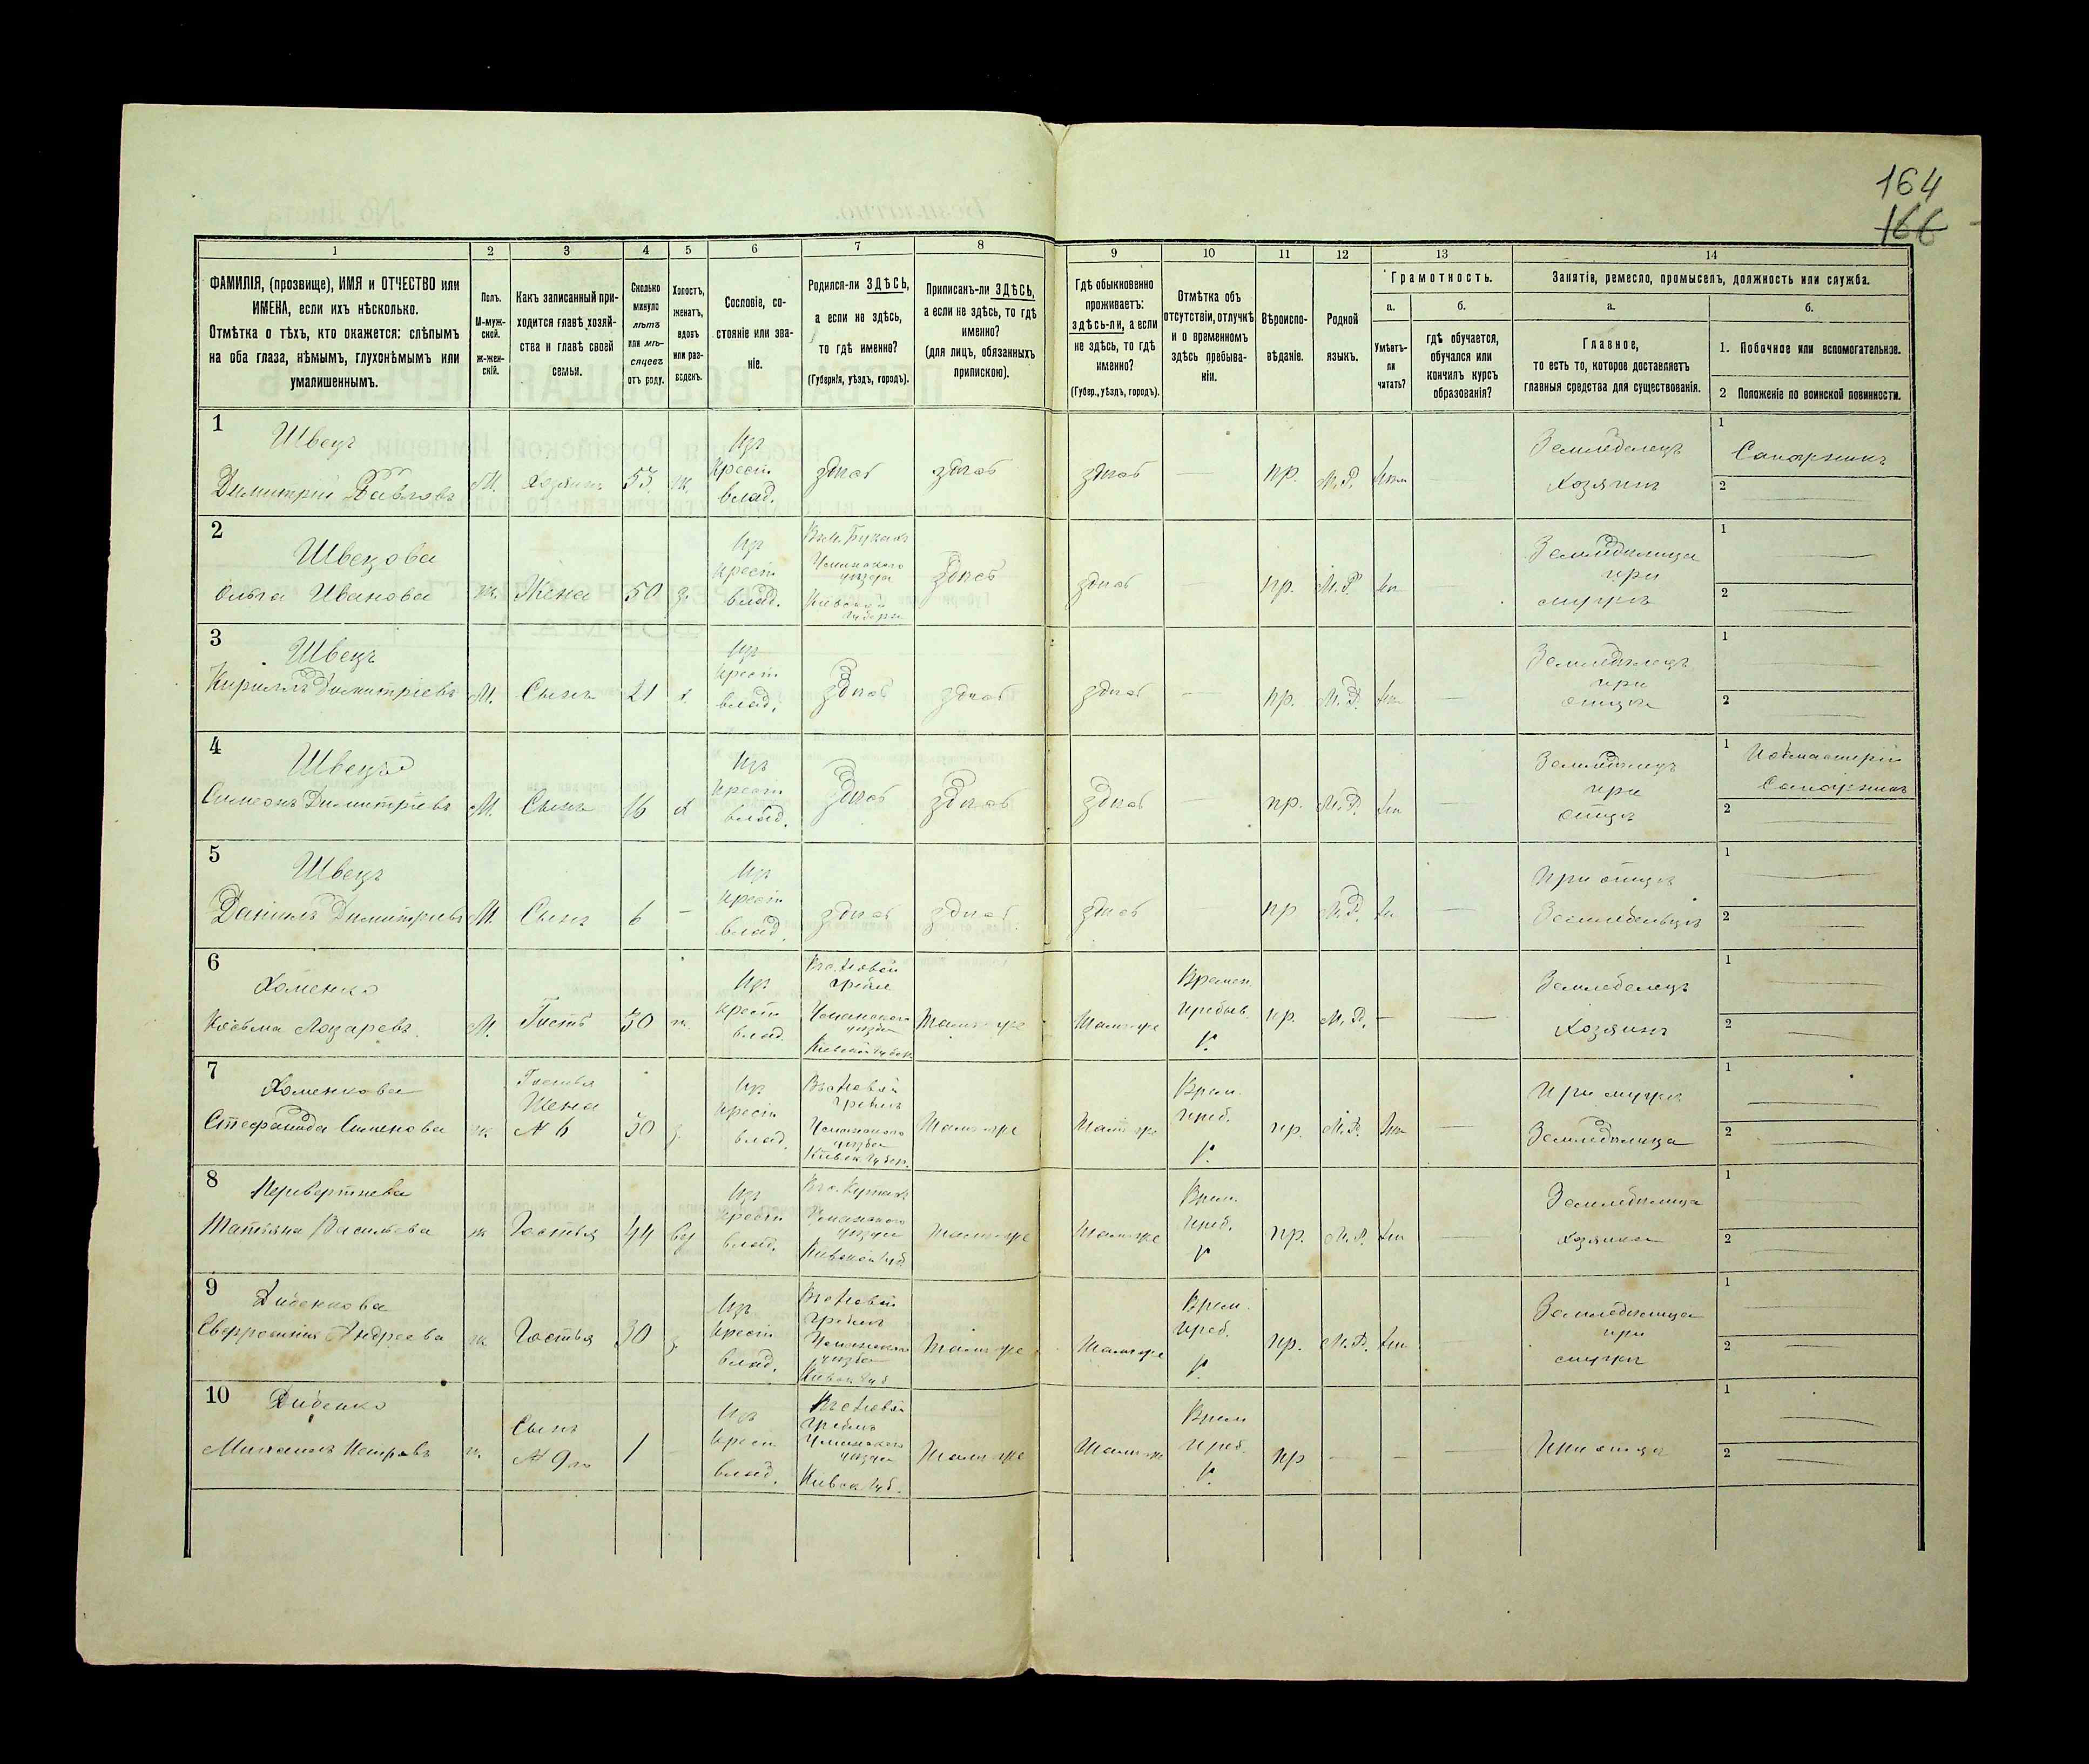 164
166
1 2 3 4 5 6 7 8 9 10 11 12 13 14
ФАМИЛІЯ, (прозвище), ИМЯ и ОТЧЕСТВО или
ИМЕНА, если ихъ нѣсколько.
Отмѣтка о тѣхъ, кто окажется: слѣпымъ
на оба глаза, нѣмымъ, глухонѣмымъ или
умалишеннымъ.
Полъ.
М-муж-
ской.
ж-жен-
скій.
Какъ записанный при-
ходится главѣ хозяй-
ства и главѣ своей
семьи.
Сколько
минуло
лѣтъ
или мѣ-
сяцевъ
отъ роду.
Холостъ,
женатъ,
вдовъ
или раз-
веденъ.
Сословіе, со-
стояніе или зва-
ніе.
Родился-ли ЗДѢСЬ,
а если не здѣсь,
то гдѣ именно?
(Губернія, уѣздъ, городъ).
Приписанъ-ли ЗДѢСЬ,
а если не здѣсь, то гдѣ
именно?
(для лицъ, обязанныхъ
припискою).
Гдѣ обыкновенно
проживаетъ:
здѣсь-ли, а если
не здѣсь, то гдѣ
именно?
(Губер., уѣздъ, городъ).
Отмѣтка объ
отсутствіи, отлучкѣ
и о временномъ
здѣсь пребыва-
ніи.
Вѣроиспо-
вѣданіе.
Родной
языкъ.
Грамотность.
а.
Умѣетъ-
ли
читать?
б.
гдѣ обучается,
обучался или
кончилъ курсъ
образованія?
Занятіе, ремесло, промыселъ, должность или служба.
а.
Главное,
то есть то, которое доставляетъ
главныя средства для существованія.
б.
1. Побочное или вспомогательное.
2 Положеніе по воинской повинности.
1
Швецъ
Димитрій Павловъ
М.
Хозяинъ
53
ж.
Изъ
крест
влад.
здѣсь
здѣсь
здѣсь
—
пр.
М.Р.
Земледелецъ
Хозяинъ
1
Сапожникъ
2
2
Швецова
Ольга Иванова
ж.
Жена
50
з.
Изъ
крест
влад.
Уманскаго
уѣзда
Кіевской
губерн
здѣсь
здѣсь
—
пр.
М.Р.
Земледѣлица
при
мужѣ
1
2
3
Швецъ
Кириллъ Димитріевъ
М.
Сынъ
21
х.
Изъ
крест
влад.
здѣсь
здѣсь
здѣсь
—
пр.
М.Р.
—
Земледѣлецъ
при
отцѣ
1
2
4
Швецъ
Симеонъ Димитріевъ
М.
Сынъ
16
х
Изъ
крест
влад.
здѣсь
здѣсь
здѣсь
пр.
М.Р.
—
Земледѣлецъ
при
отцѣ
1
Сапожникъ
2
5
Швецъ
Даніилъ Димитріевъ
М.
Сынъ
6
—
Изъ
крест
влад.
здѣсь
здѣсь
здѣсь
пр
М.Р.
—
При отцѣ
1
2
6
Хоменко
Косьма Лазаревъ
М.
Гость
30
ж.
Изъ
крест
влад
Въ с. Новой
Гребле
Уманскаго
уѣзда
Кіевской губер.
Тамъ-же
Тамъ-же
Времен.
пребыв.
пр.
М.Р.
—
—
Земледелецъ
Хозяинъ
1
2
7
Хоменкова
Стефанида Симеонова
ж.
Гостья
Жена
№ 6
30
з.
Изъ
крест
влад.
Въ с Новой
Гребле
Уманскаго
уѣзда
Кіевск губер.
Тамъ-же
Тамъ же
Врем.
преб.
пр.
М.Р.
—
При мужѣ
Земледѣлица
1
2
8
Перевертнева
Татьяна Васильева
ж
Гостья
44
вд
Изъ
крест
влад.
Уманскаго
уѣзда
Кіевской губ
Тамъ-же
Тамъ-же
Врем.
преб.
пр.
М.Р.
—
Земледѣлица
Хозяйка
1
2
9
Диденкова
Евфросинія Андреева
ж
Гостья
30
з.
Изъ
крест
влад.
Въ с Новой
Гребле
Уманскаго
уѣзда
Кіевск губ
Тамъ же
Тамъ же
Врем.
преб.
пр.
М.Р.
Земледѣлица
при
мужѣ
1
2
10
Диденко
Михаилъ Петровъ
Сынъ
№ 9го
1
—
Изъ
крест
влад.
Въ с Новой
Гребле
Уманскаго
уѣзда
Кіевск губ.
Тамъ-же
Тамъ-же
Врем
преб.
пр
—
—
—
При отцѣ
1
2